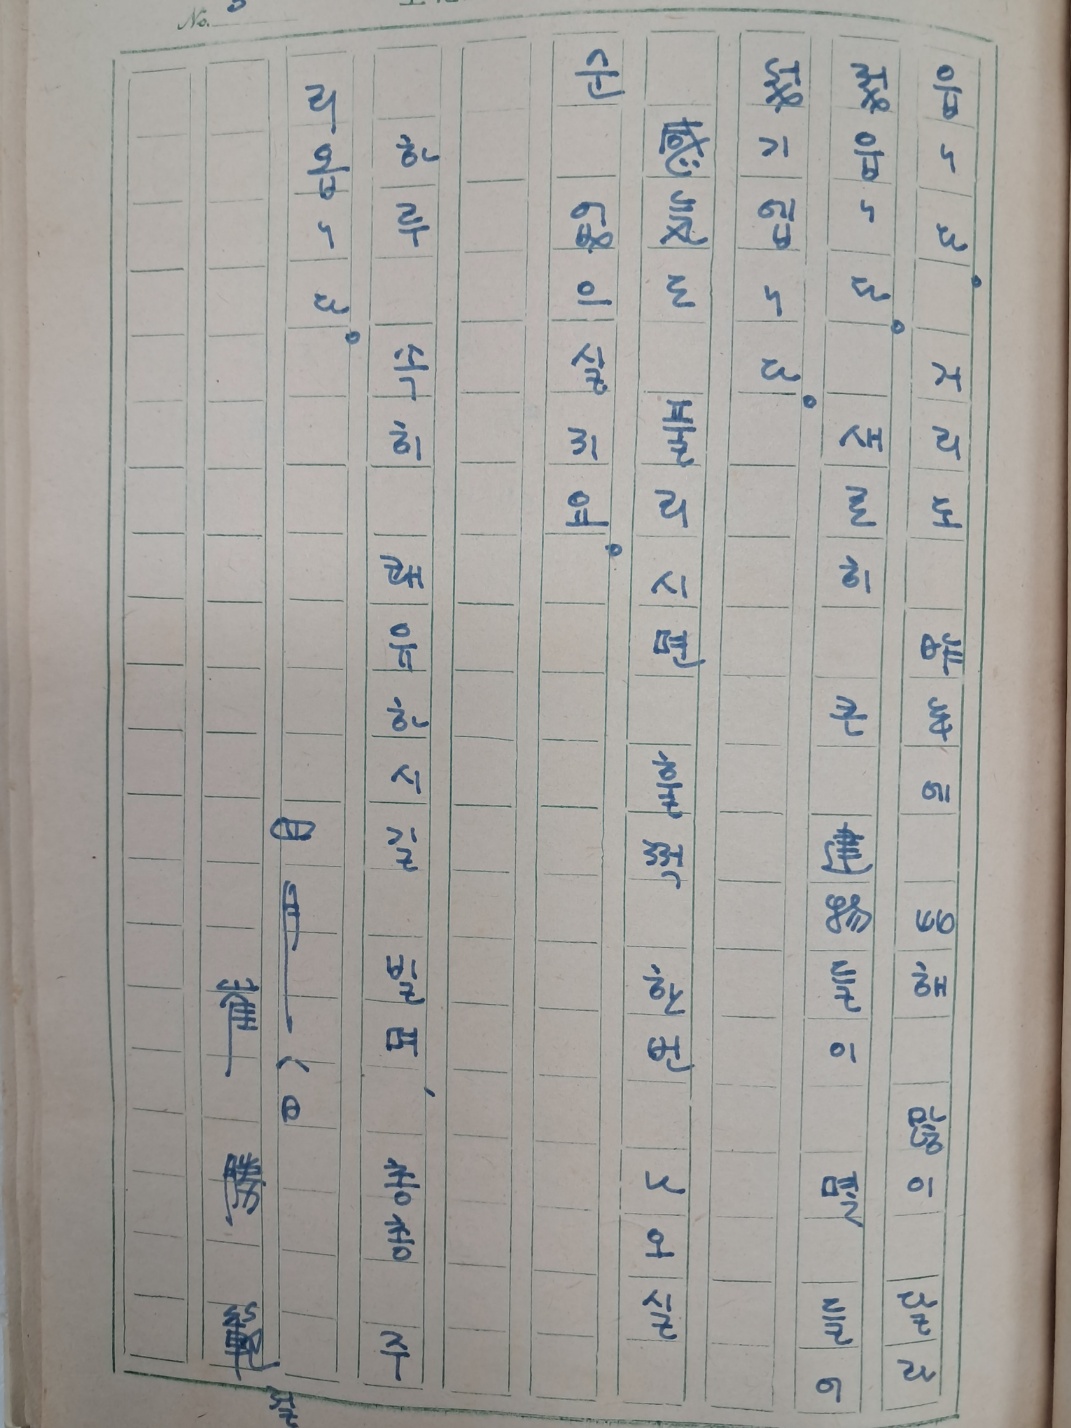 읍니다. 거리도 昨年에 比해 많이 달라
졌읍니다. 새로히 큰 建物들이 들어
니다.
풀리시면 훌쩍 한번 나오실
순 없이실지여.
하루 속히 쾌유하시길 빌며, 총총 주
리옵니다.
四月一八日
崔勝範 절